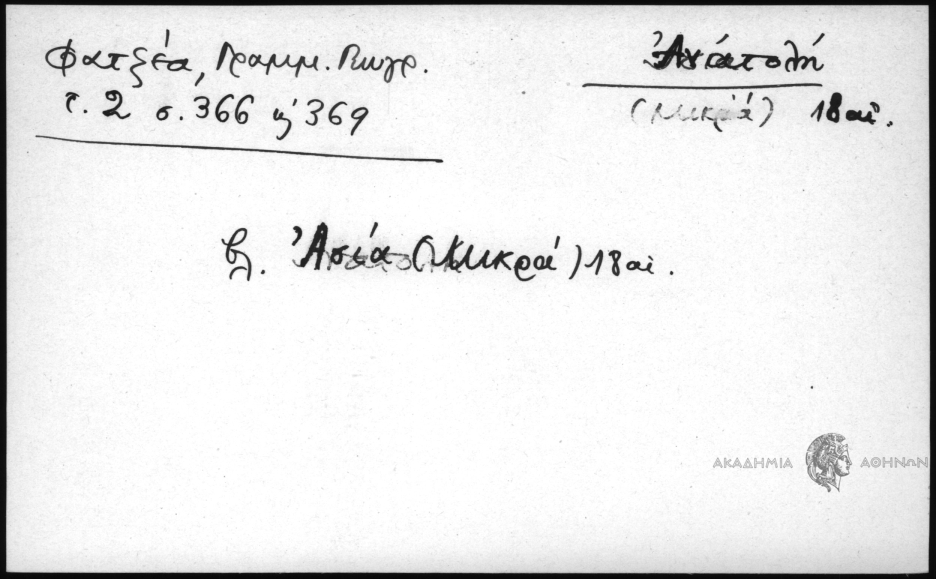 Φατζέα, Γραμμ. Γεωγρ.
τ. 2 σ. 366 ϗ 369
Ἀνατολή
(Μικρά) 18 αἰ.
βλ. Ἀσία (Μικρά) 18 αἰ.
ΑΚΑΔΗΜΙΑ ΑΘΗΝΩΝ